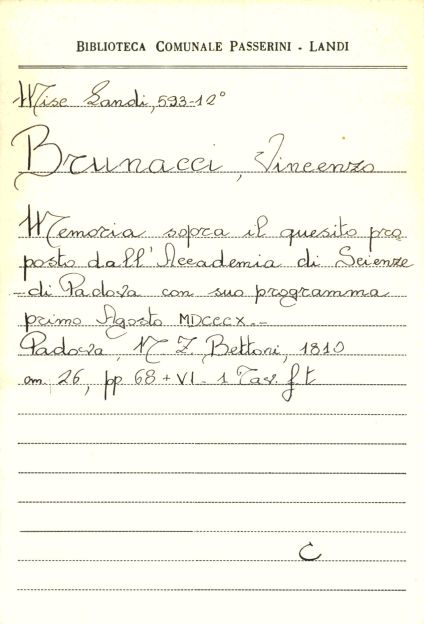 BIBLIOTECA COMUNALE PASSERINI - LANDI
Misc Landi, 593-12°
Brunacci, Vincenzo
Memoria sopra il quesito pro
posto dall'Accademia di Scienze
di Padova con suo programma
primo Agosto MDCCCX.-
Padova, N Z. Bettoni, 1810
cm. 26, pp 68 + VI - 1 Tav. f.t
C